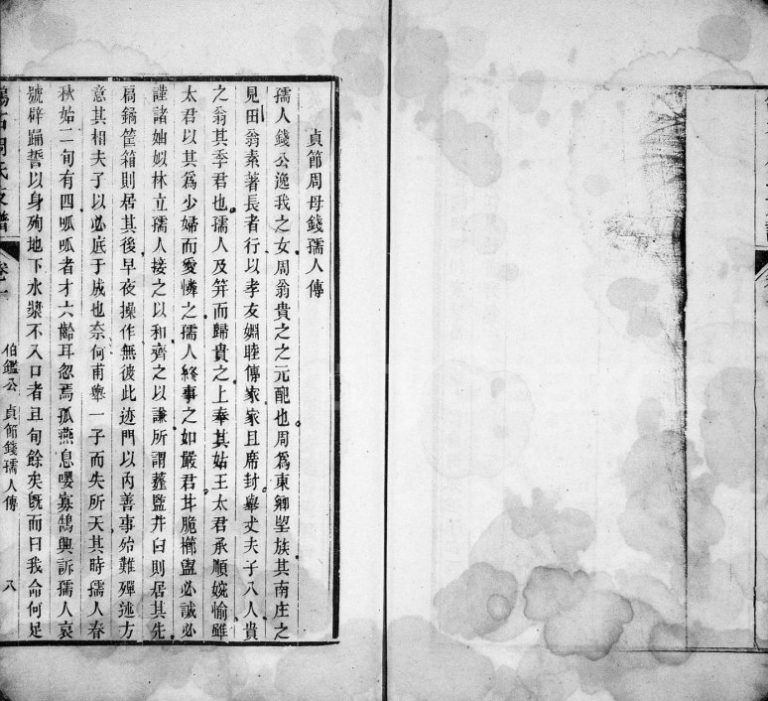 貞節周母錢孺人傳
孺人錢公逸我之女周翁貴之之元配也周爲東鄉望族其南庄之
見田翁素著長者行以孝友婣睦傳家家且席封舉丈夫子八人貴
之翁其季君也孺人及笄而歸貴之上奉其姑王太君承順婉愉雖
太君以其爲少婦而愛憐之孺人終事之如嚴君甘脆櫛盥必誠必
謹諸妯姒林立孺人接之以和齊之以謙所謂薤鹽井臼則居其先
縞鏑筐箱則居其後早夜操作無彼此迹門以內善事殆難殫述方
意其相夫子以必底于成也奈何甫舉一子而失所天其時孺人春
秋始二旬有四呱呱者才六齡耳忽焉孤燕息嚶寡鵠興訴孺人哀
號擗踊誓以身殉地下水漿不入口者且旬餘矣旣而曰我命何足
周氏支譜 卷一
伯鑑公 貞節錢孺人傳 八